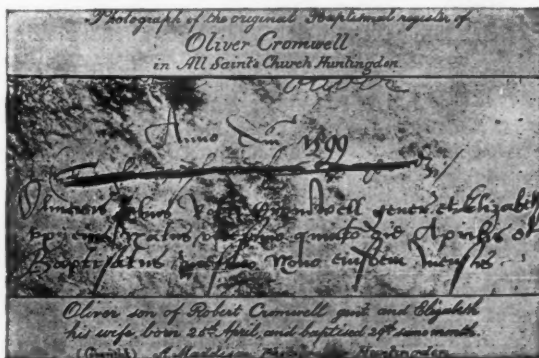 Photograph of the original Baptismal register of
Oliver Cromwell
in All Saint's Church Huntingdon.
Anno Dm 1599
Oliverus filius Cromwell gener et Elizabeth
natus quinto die Aprilis et
Baptisatus nono eiusdem mensis
Oliver son of Robert Cromwell gent and Elizabeth
his wife born 25th April, and baptised 29th same month.
A. Maddison Huntingdon